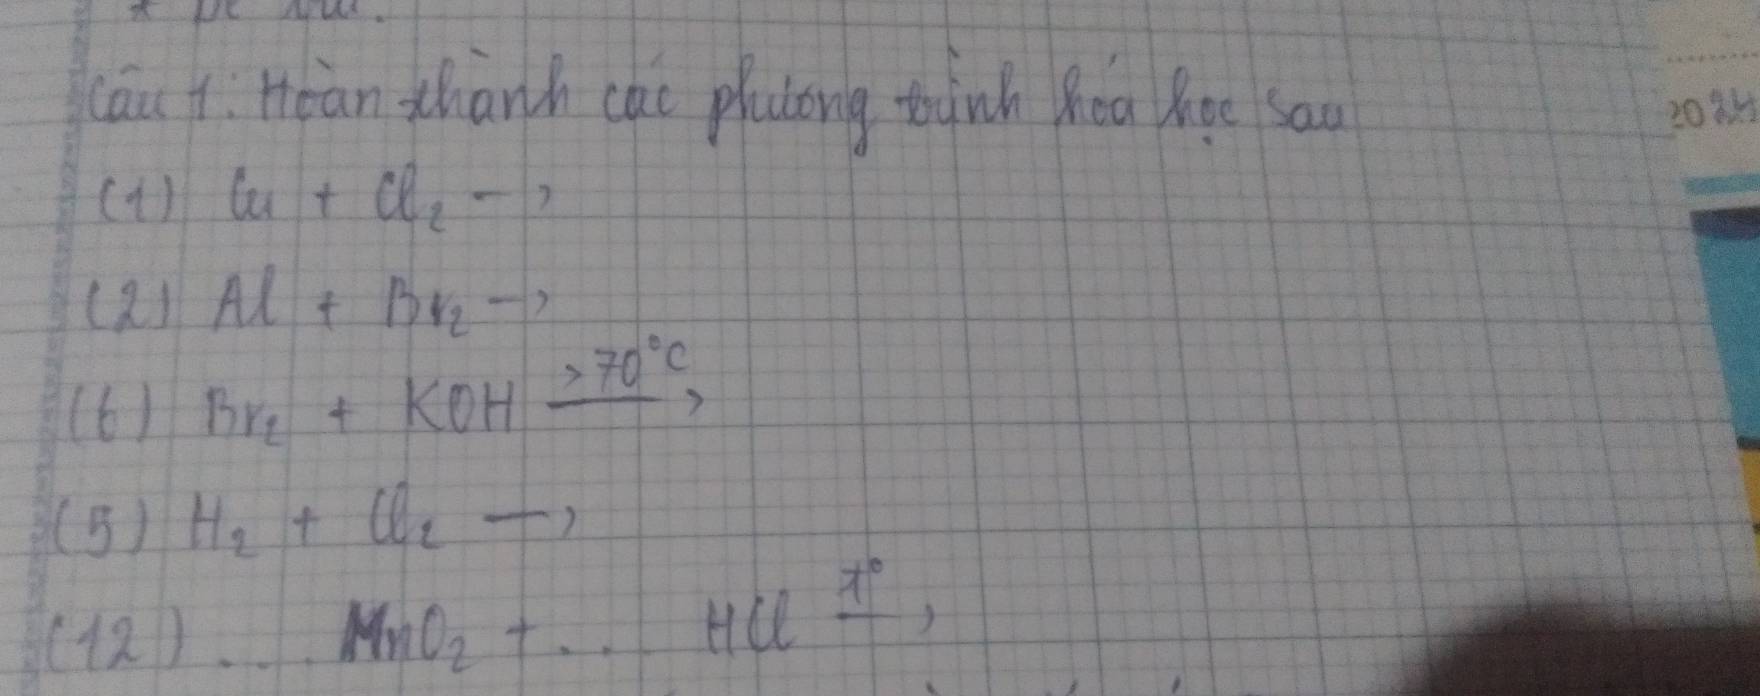 Câu 1: Hoàn thành các phương trình hóa học sau
(1) Cu + Cl₂ →
(2) Al + Br₂ →
(6) Br₂ + KOH >70°C →
(5) H₂ + Cl₂ →
(12) .... MnO₂ + ... HCl t° →